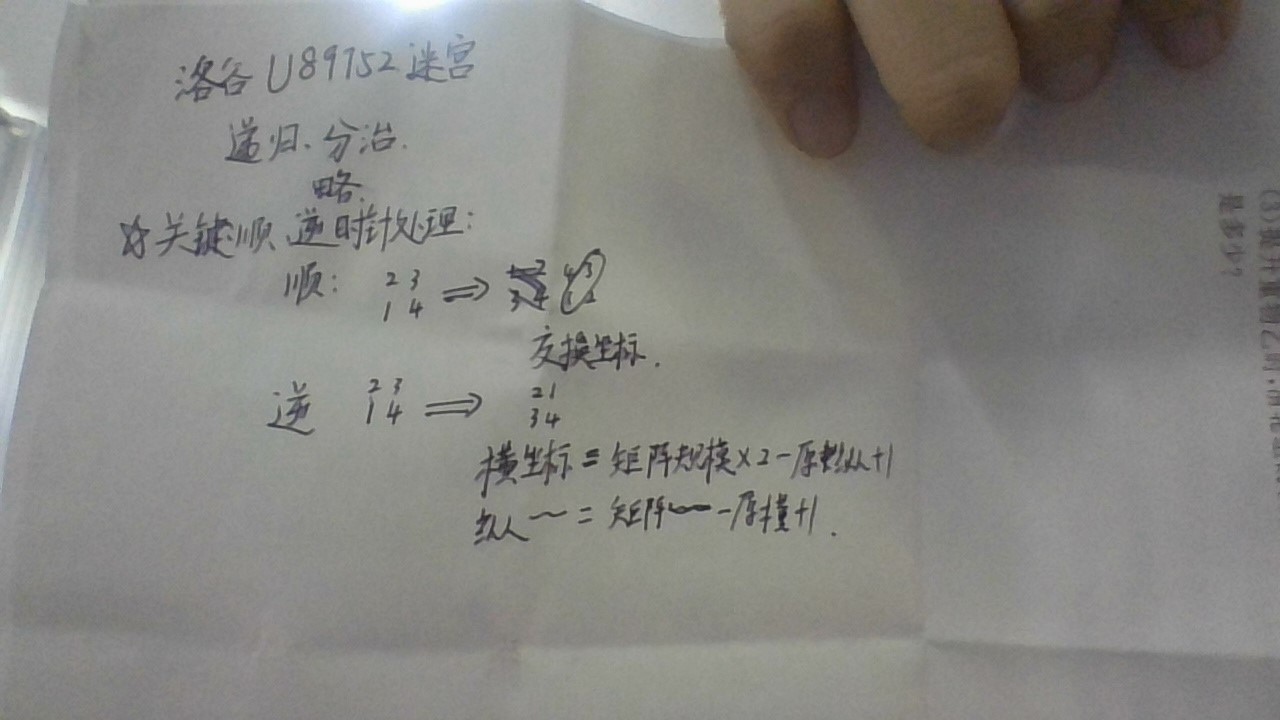 洛谷 U89752 迷宫
递归、分治.
略.
☆关键:顺、逆时针处理:
顺: 2 3
1 4 ⇒ 4 3
1 2
交换坐标.
逆 2 3
1 4 ⇒ 2 1
3 4
横坐标 = 矩阵规模×2-原纵+1
纵~ = 矩阵~-原横+1.
是多少?